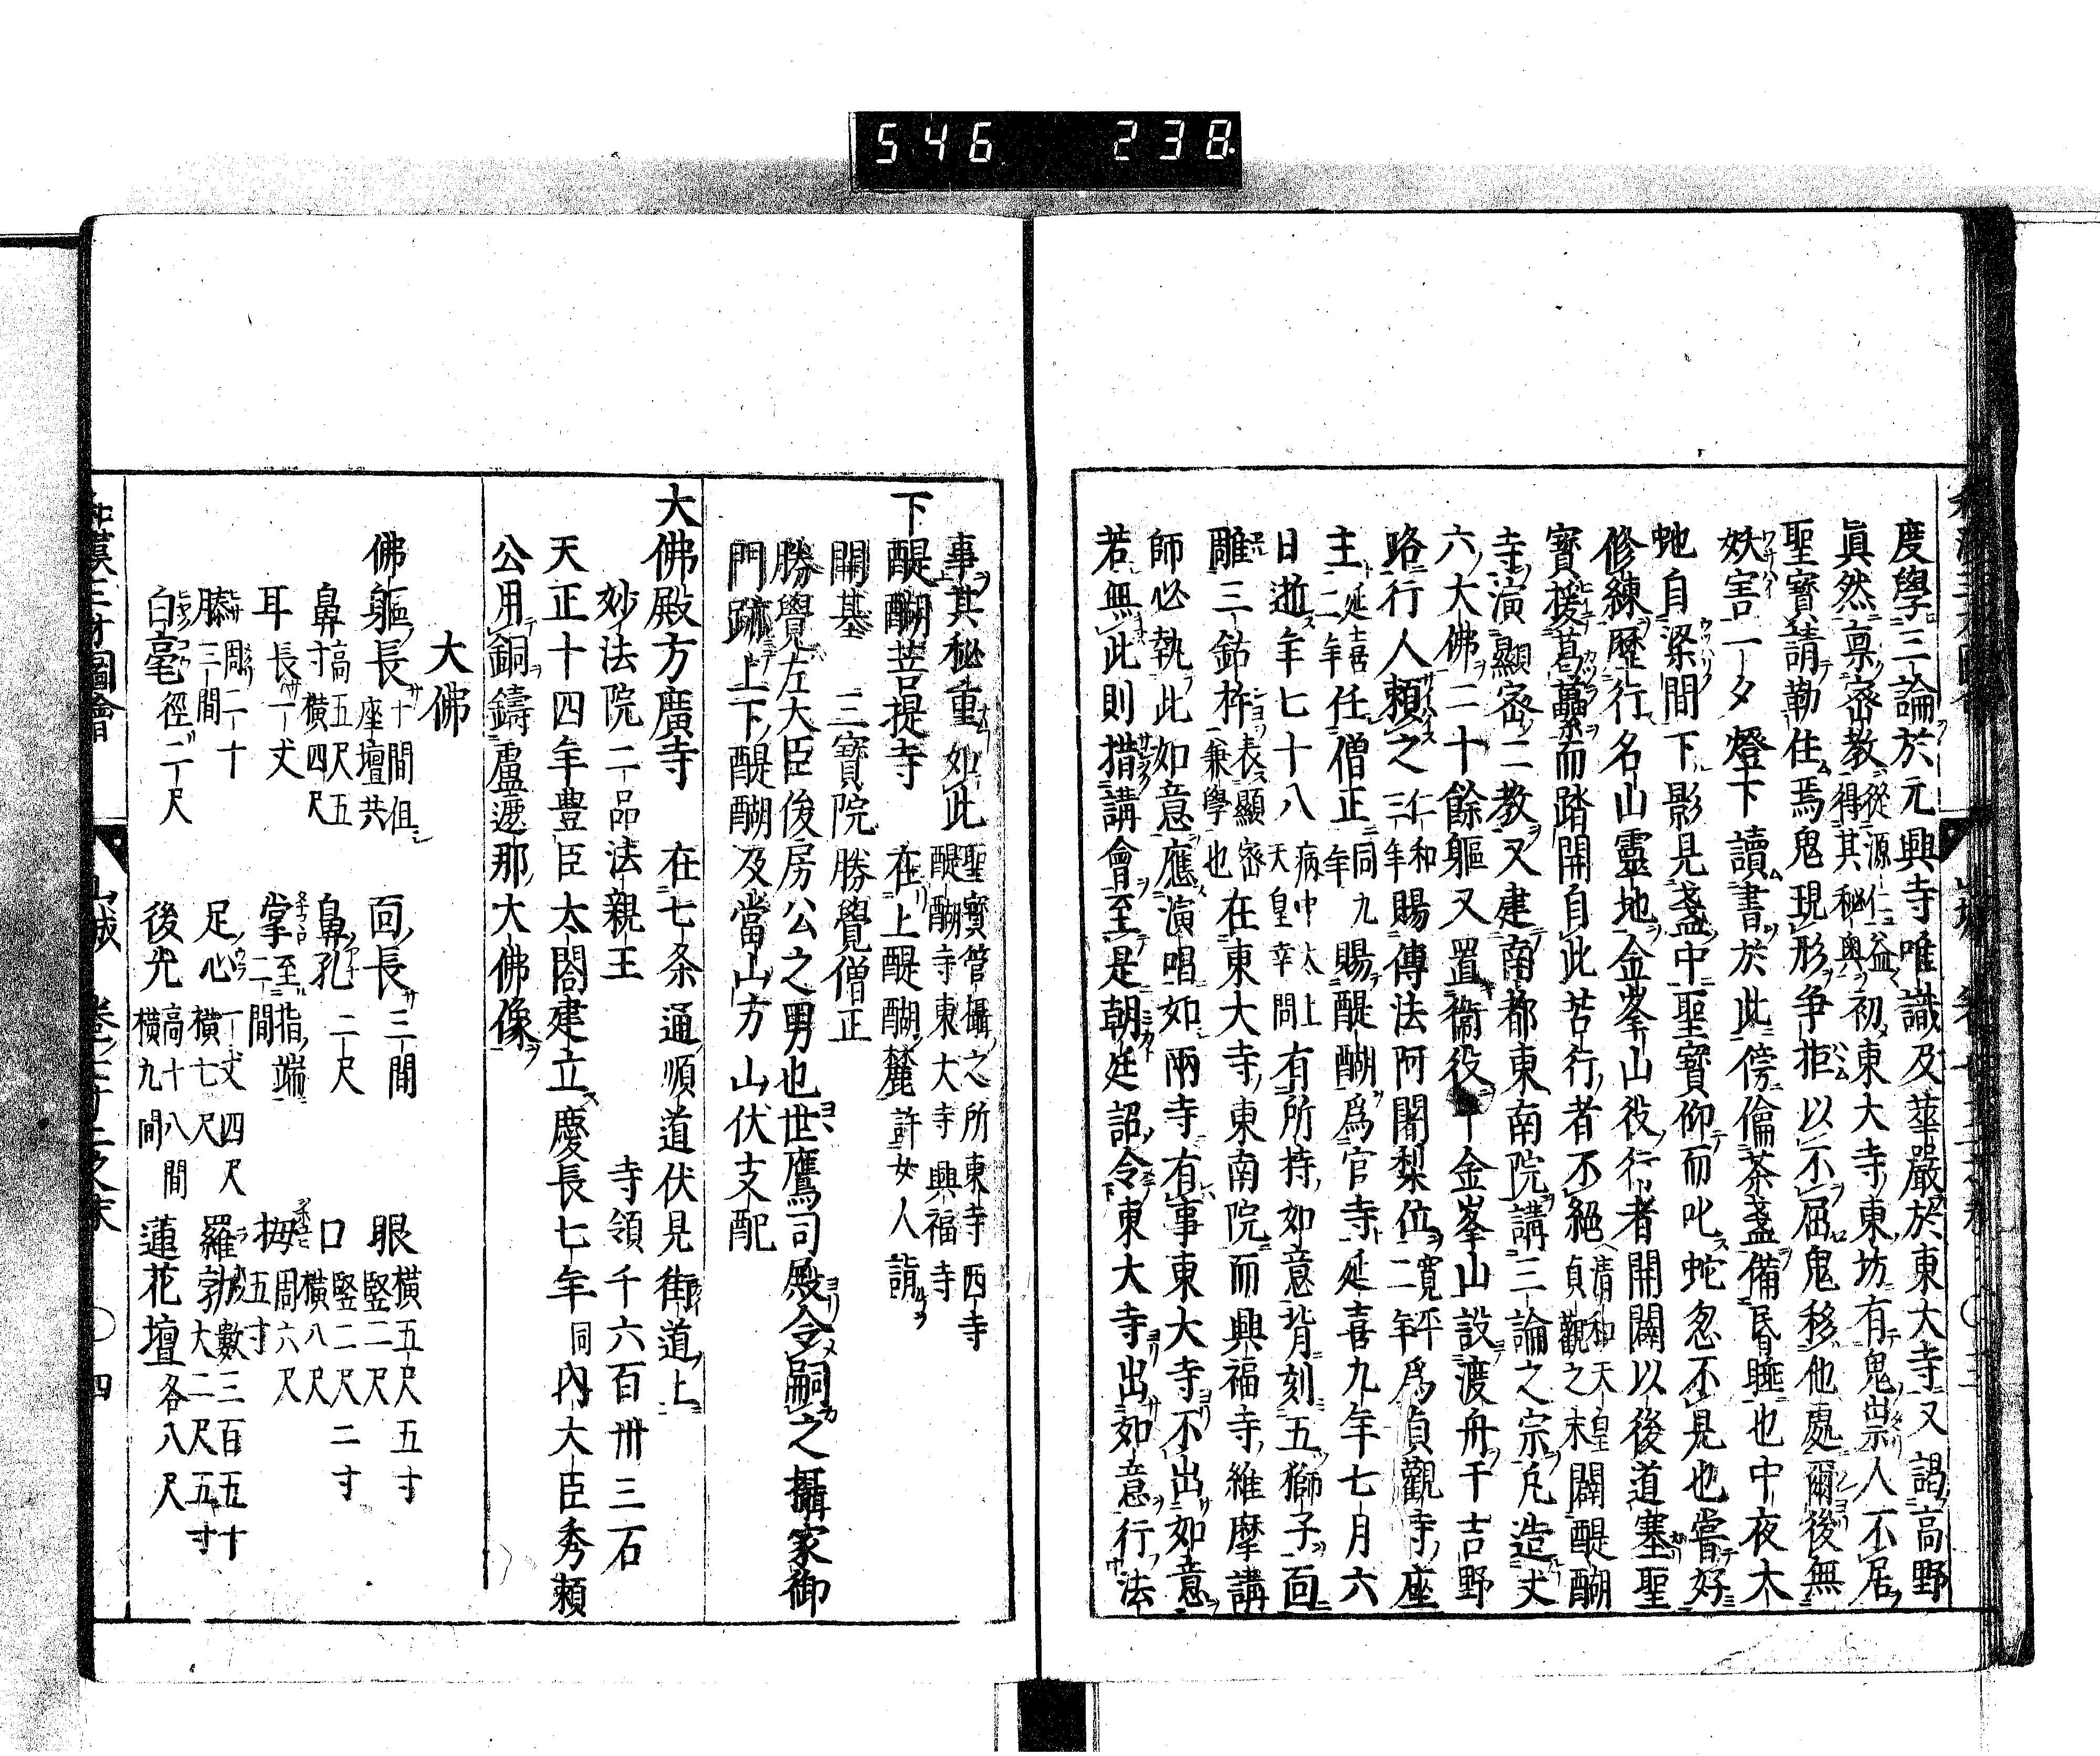 546 238
度學三論於元興寺唯識及華嚴於東大寺又謁高野
眞然稟密教從源仁益得其秘奥初東大寺東坊有鬼祟人不居
聖寳請勒住焉鬼現形争拒以不屈鬼移他處爾後無
妖害一夕燈下讀書於此傍倫茶盞備昬睡也中夜大
虵自梁間下影見盞中聖寳仰而叱蛇忽不見也嘗好
修練歴行名山靈地金峯山役行者開闢以後道塞聖
寳援葛藟而踏開自此苦行者不絕清和天皇貞觀之末闢醍醐
寺演顯密二教又建南都東南院講三論之宗凡造丈
六大佛二十餘軀又置衞役于金峯山設渡舟于吉野
路行人頼之仁和三年賜傳法阿闍梨位寛平二年爲貞觀寺座
主延喜二年任僧正同九年賜醍醐爲官寺延喜九年七月六
日逝年七十八病中太上天皇幸問有所持如意背刻五獅子面
雕三鈷杵表顯密兼學也在東大寺東南院而興福寺維摩講
師必執此如意應演唱如兩寺有事東大寺不出如意
若無此則措講會至是朝廷詔令東大寺出如意行法
事其秘重如此聖寳管攝之所東寺西寺醍醐寺東大寺興福寺
下醍醐菩提寺 在上醍醐麓許女人詣
開基 三寳院勝覺僧正
勝覺左大臣俊房公之男也世鷹司殿令嗣之攝家御
門跡上下醍醐及當山方山伏支配
大佛殿方廣寺 在七条通順道伏見街道上
妙法院二品法親王 寺領千六百卅三石
天正十四年豊臣太閤建立慶長七年同内大臣秀頼
公用銅鑄盧遮那大佛像
大佛
佛軀長十間但座壇共 面長三間 眼横五尺五寸竪二尺
鼻高五尺五寸横四尺 鼻孔二尺 口竪二尺二寸横八尺
耳長一丈 掌至指端二間 拇周六尺五寸
膝周二十三間 足心一丈四尺横七尺 羅勃數三百五十大二尺五寸
白毫徑二尺 後光高十八間横九間 蓮花壇各八尺
和漢三才圖會 山城 卷七十二之末 四